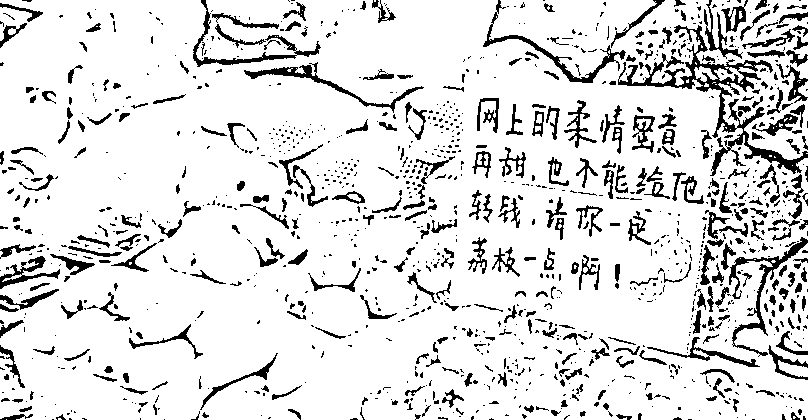 网上的柔情密意
再甜,也不能给他
转钱,请你一定
荔枝一点啊!